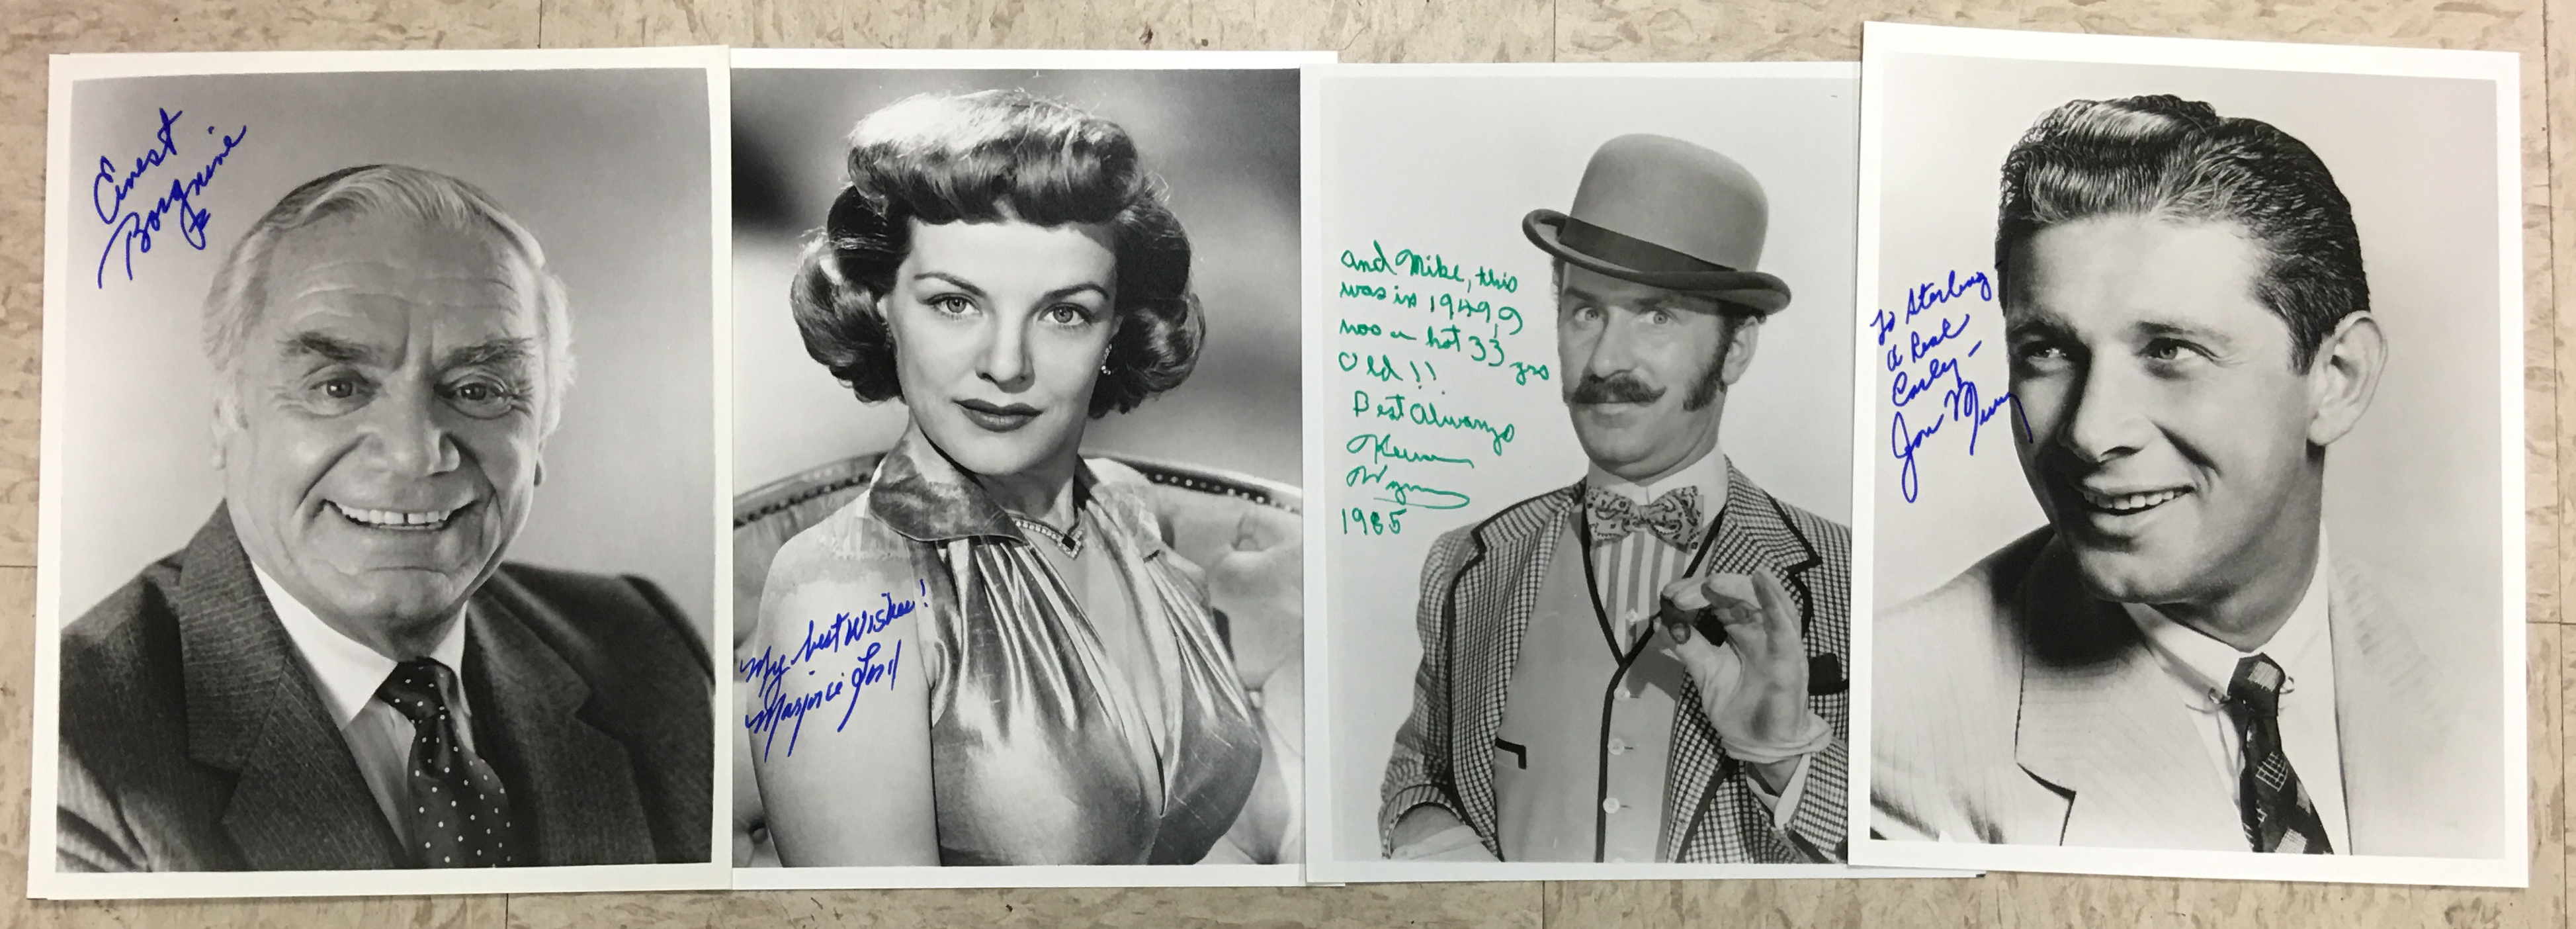 Ernest
Borgnine
My best wishes!
Marjorie Lord
and Mike, this
was in 1949, I
was a hot 33 yrs
old!!
Best always
Keenan
Wynn
1985
To Sterling
a Real